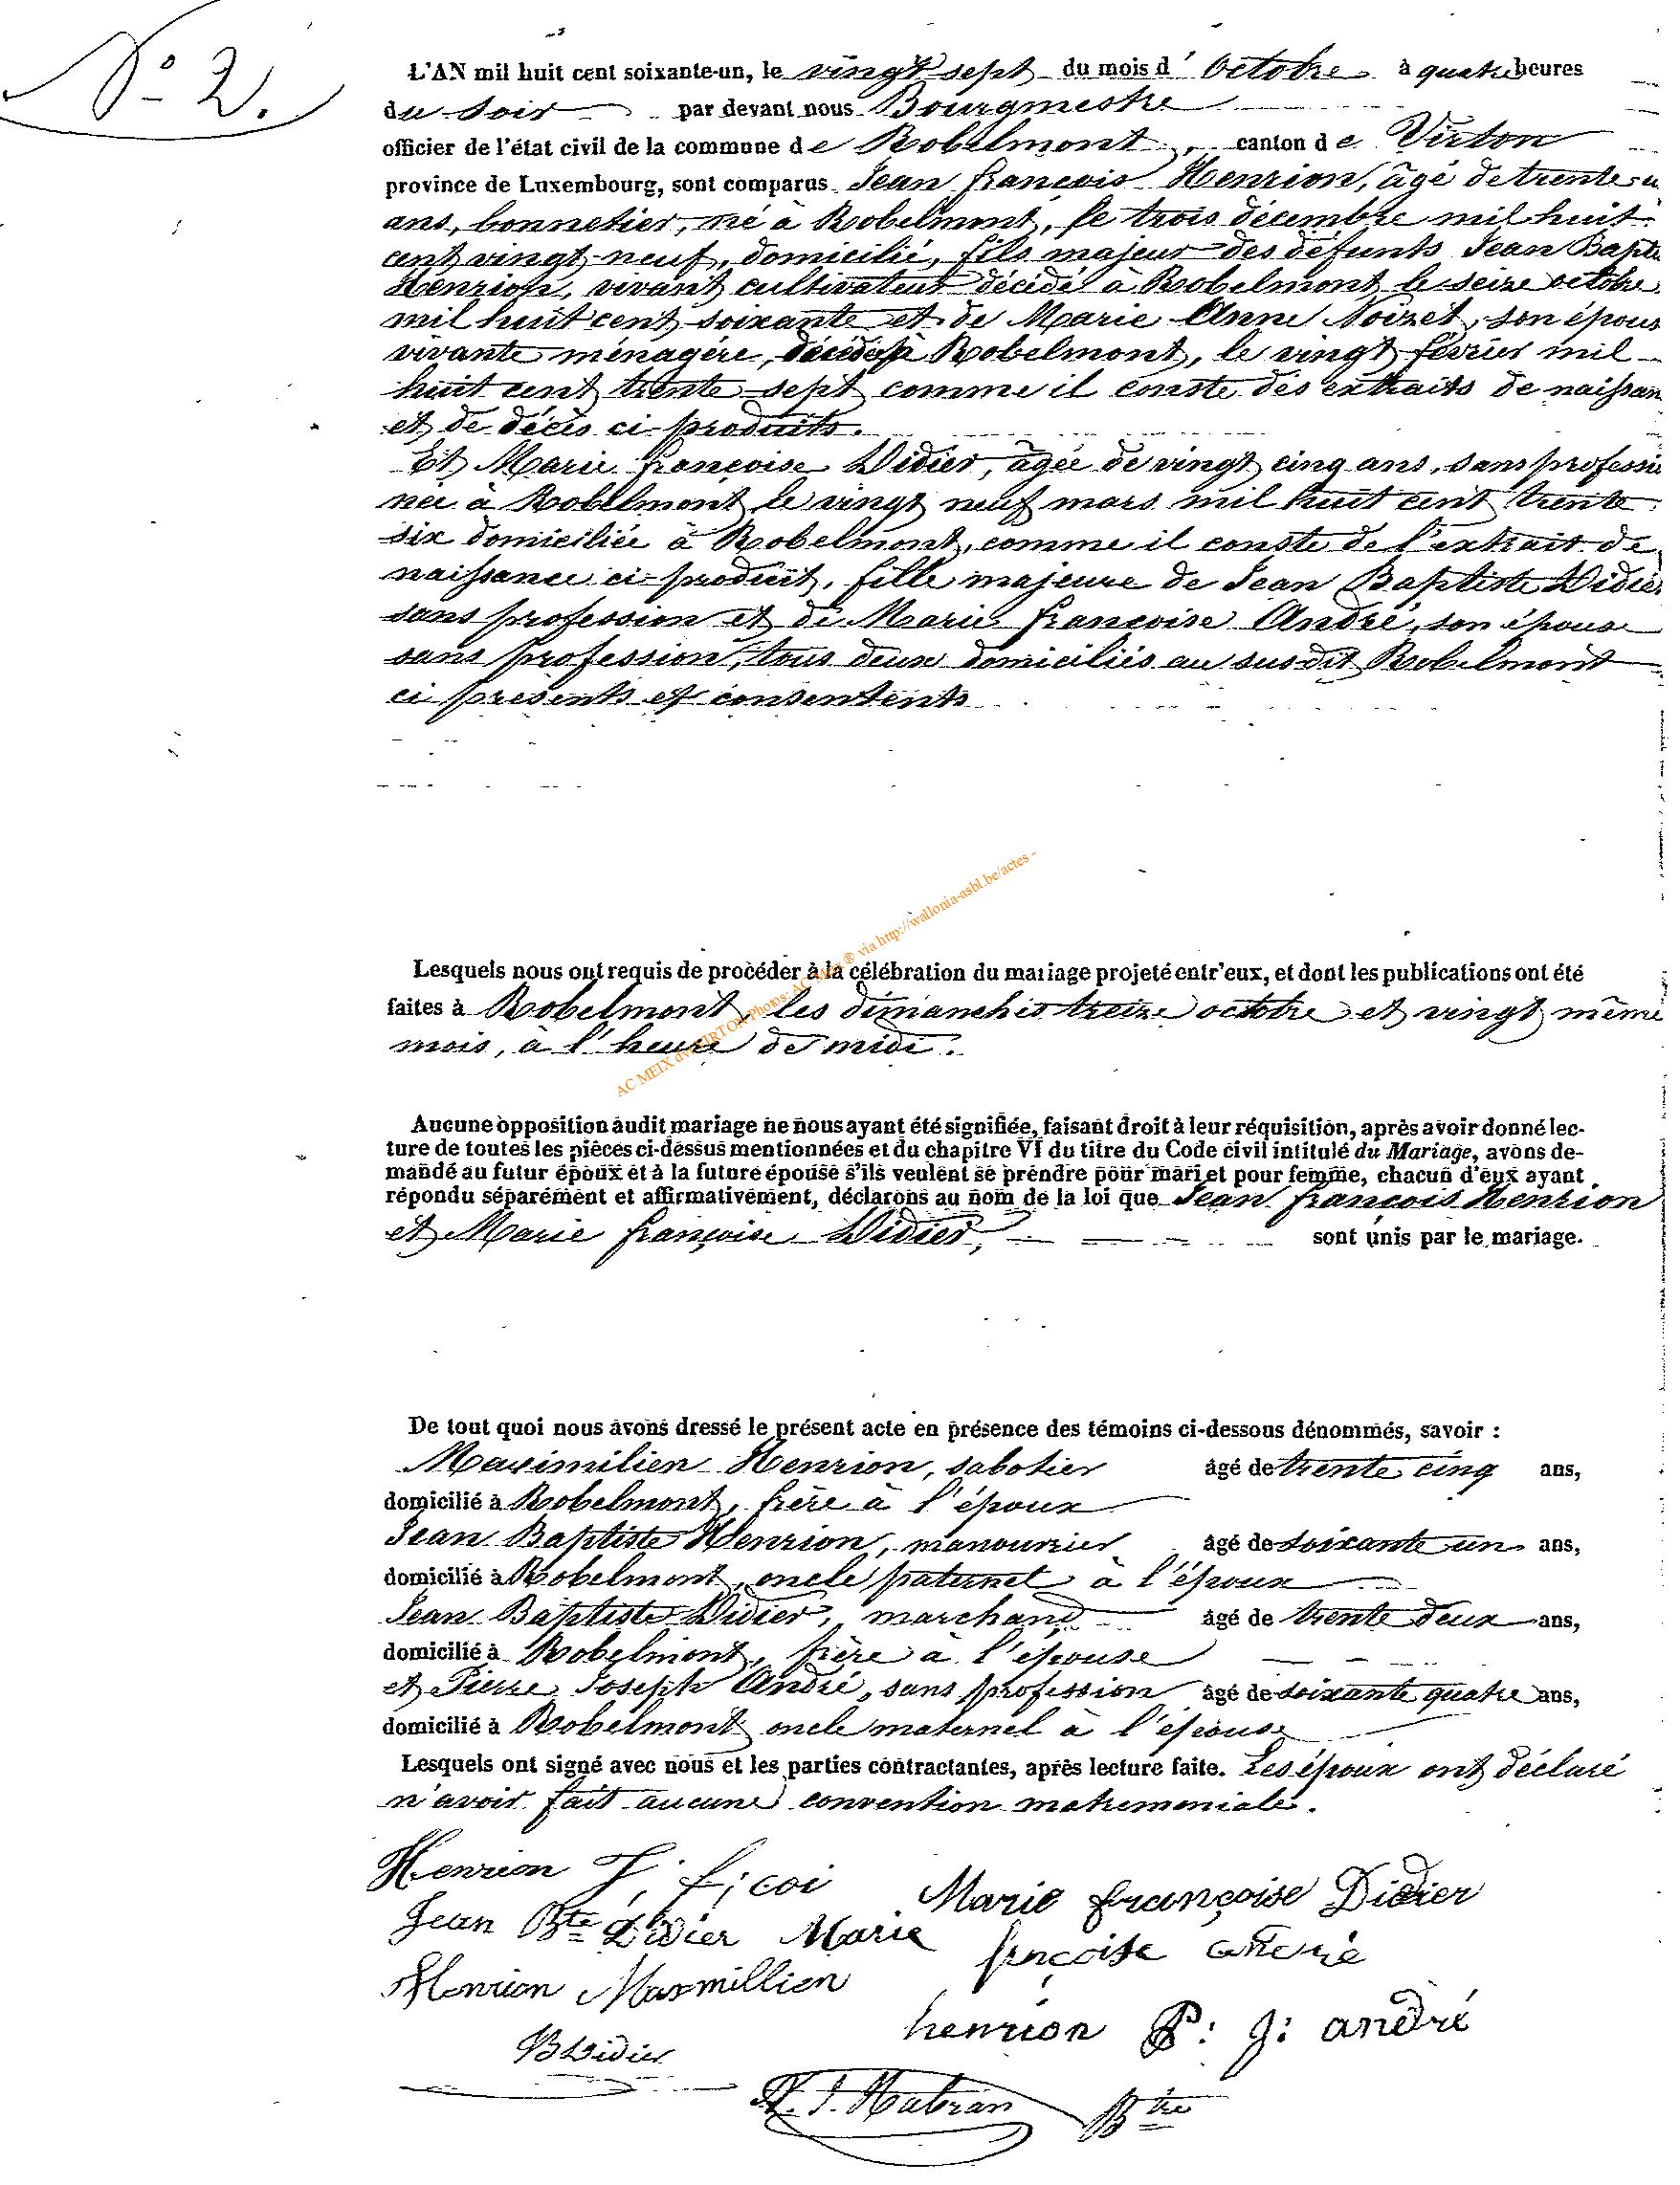 N° 2.
L'AN mil huit cent soixante-un, le vingt sept du mois d'Octobre à quatre heures
du soir par devant nous Bourgmestre
officier de l'état civil de la commune de Robelmont, canton de Virton
province de Luxembourg, sont comparus Jean françois Henrion, âgé de trente-u
ans, bonnetier, né à Robelmont, le trois décembre mil huit
cent vingt-neuf, domicilié, fils majeur des défunts Jean Bapti
Henrion, vivant cultivateur décédé à Robelmont le seize octobre
mil huit cent soixante et de Marie Anne Noizet, son épous
vivante ménagère, décédée à Robelmont, le vingt février mil
huit cent trente-sept comme il conste des extraits de naissan
et de décès ci-produits.
Et Marie françoise Didier, âgée de vingt cinq ans, sans professi
née à Robelmont le vingt neuf mars mil huit cent trente
six domiciliée à Robelmont, comme il conste de l'extrait de
naissance ci-produit, fille majeure de Jean Baptiste Didier
sans profession et de Marie françoise André, son épouse
sans profession, tous deux domiciliés au susdit Robelmont
ci présents et consentents
Lesquels nous ont requis de procéder à la célébration du mariage projeté entr'eux, et dont les publications ont été
faites à Robelmont, les dimanches treize octobre et vingt même
mois, à l'heure de midi.
AC MEIX dvt VIRTON Photos: AC MEIX ® via http://wallonia-asbl.be/actes -
Aucune opposition audit mariage ne nous ayant été signifiée, faisant droit à leur réquisition, après avoir donné lec-
ture de toutes les pièces ci-dessus mentionnées et du chapitre VI du titre du Code civil intitulé du Mariage, avons de-
mandé au futur époux et à la future épouse s'ils veulent se prendre pour mari et pour femme, chacun d'eux ayant
répondu séparément et affirmativement, déclarons au nom de la loi que Jean françois Henrion
et Marie françoise Didier, sont unis par le mariage.
De tout quoi nous avons dressé le présent acte en présence des témoins ci-dessous dénommés, savoir :
Maximilien Henrion, sabotier âgé de trente cinq ans,
domicilié à Robelmont, frère à l'époux
Jean Baptiste Henrion, manouvrier âgé de soixante un ans,
domicilié à Robelmont, oncle paternel à l'époux
Jean Baptiste Didier, marchand âgé de trente deux ans,
domicilié à Robelmont, frère à l'épouse
et Pierre Joseph André, sans profession âgé de soixante quatre ans,
domicilié à Robelmont oncle maternel à l'épouse
Lesquels ont signé avec nous et les parties contractantes, après lecture faite. Les époux ont déclaré
n'avoir fait aucune convention matrimoniale.
Henrion J: f; coi Marie françoise Didier
Jean Bte Didier Marie
Henrion Maxmillien
henrion P: J: andré
B Didier
Btre